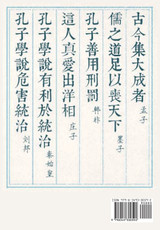 古今集大成者
孟子
儒之道足以喪天下
墨子
孔子善用刑罰
韩非
這人真愛出洋相
庄子
孔子學說有利於統治
秦始皇
孔子學說危害統治
刘邦